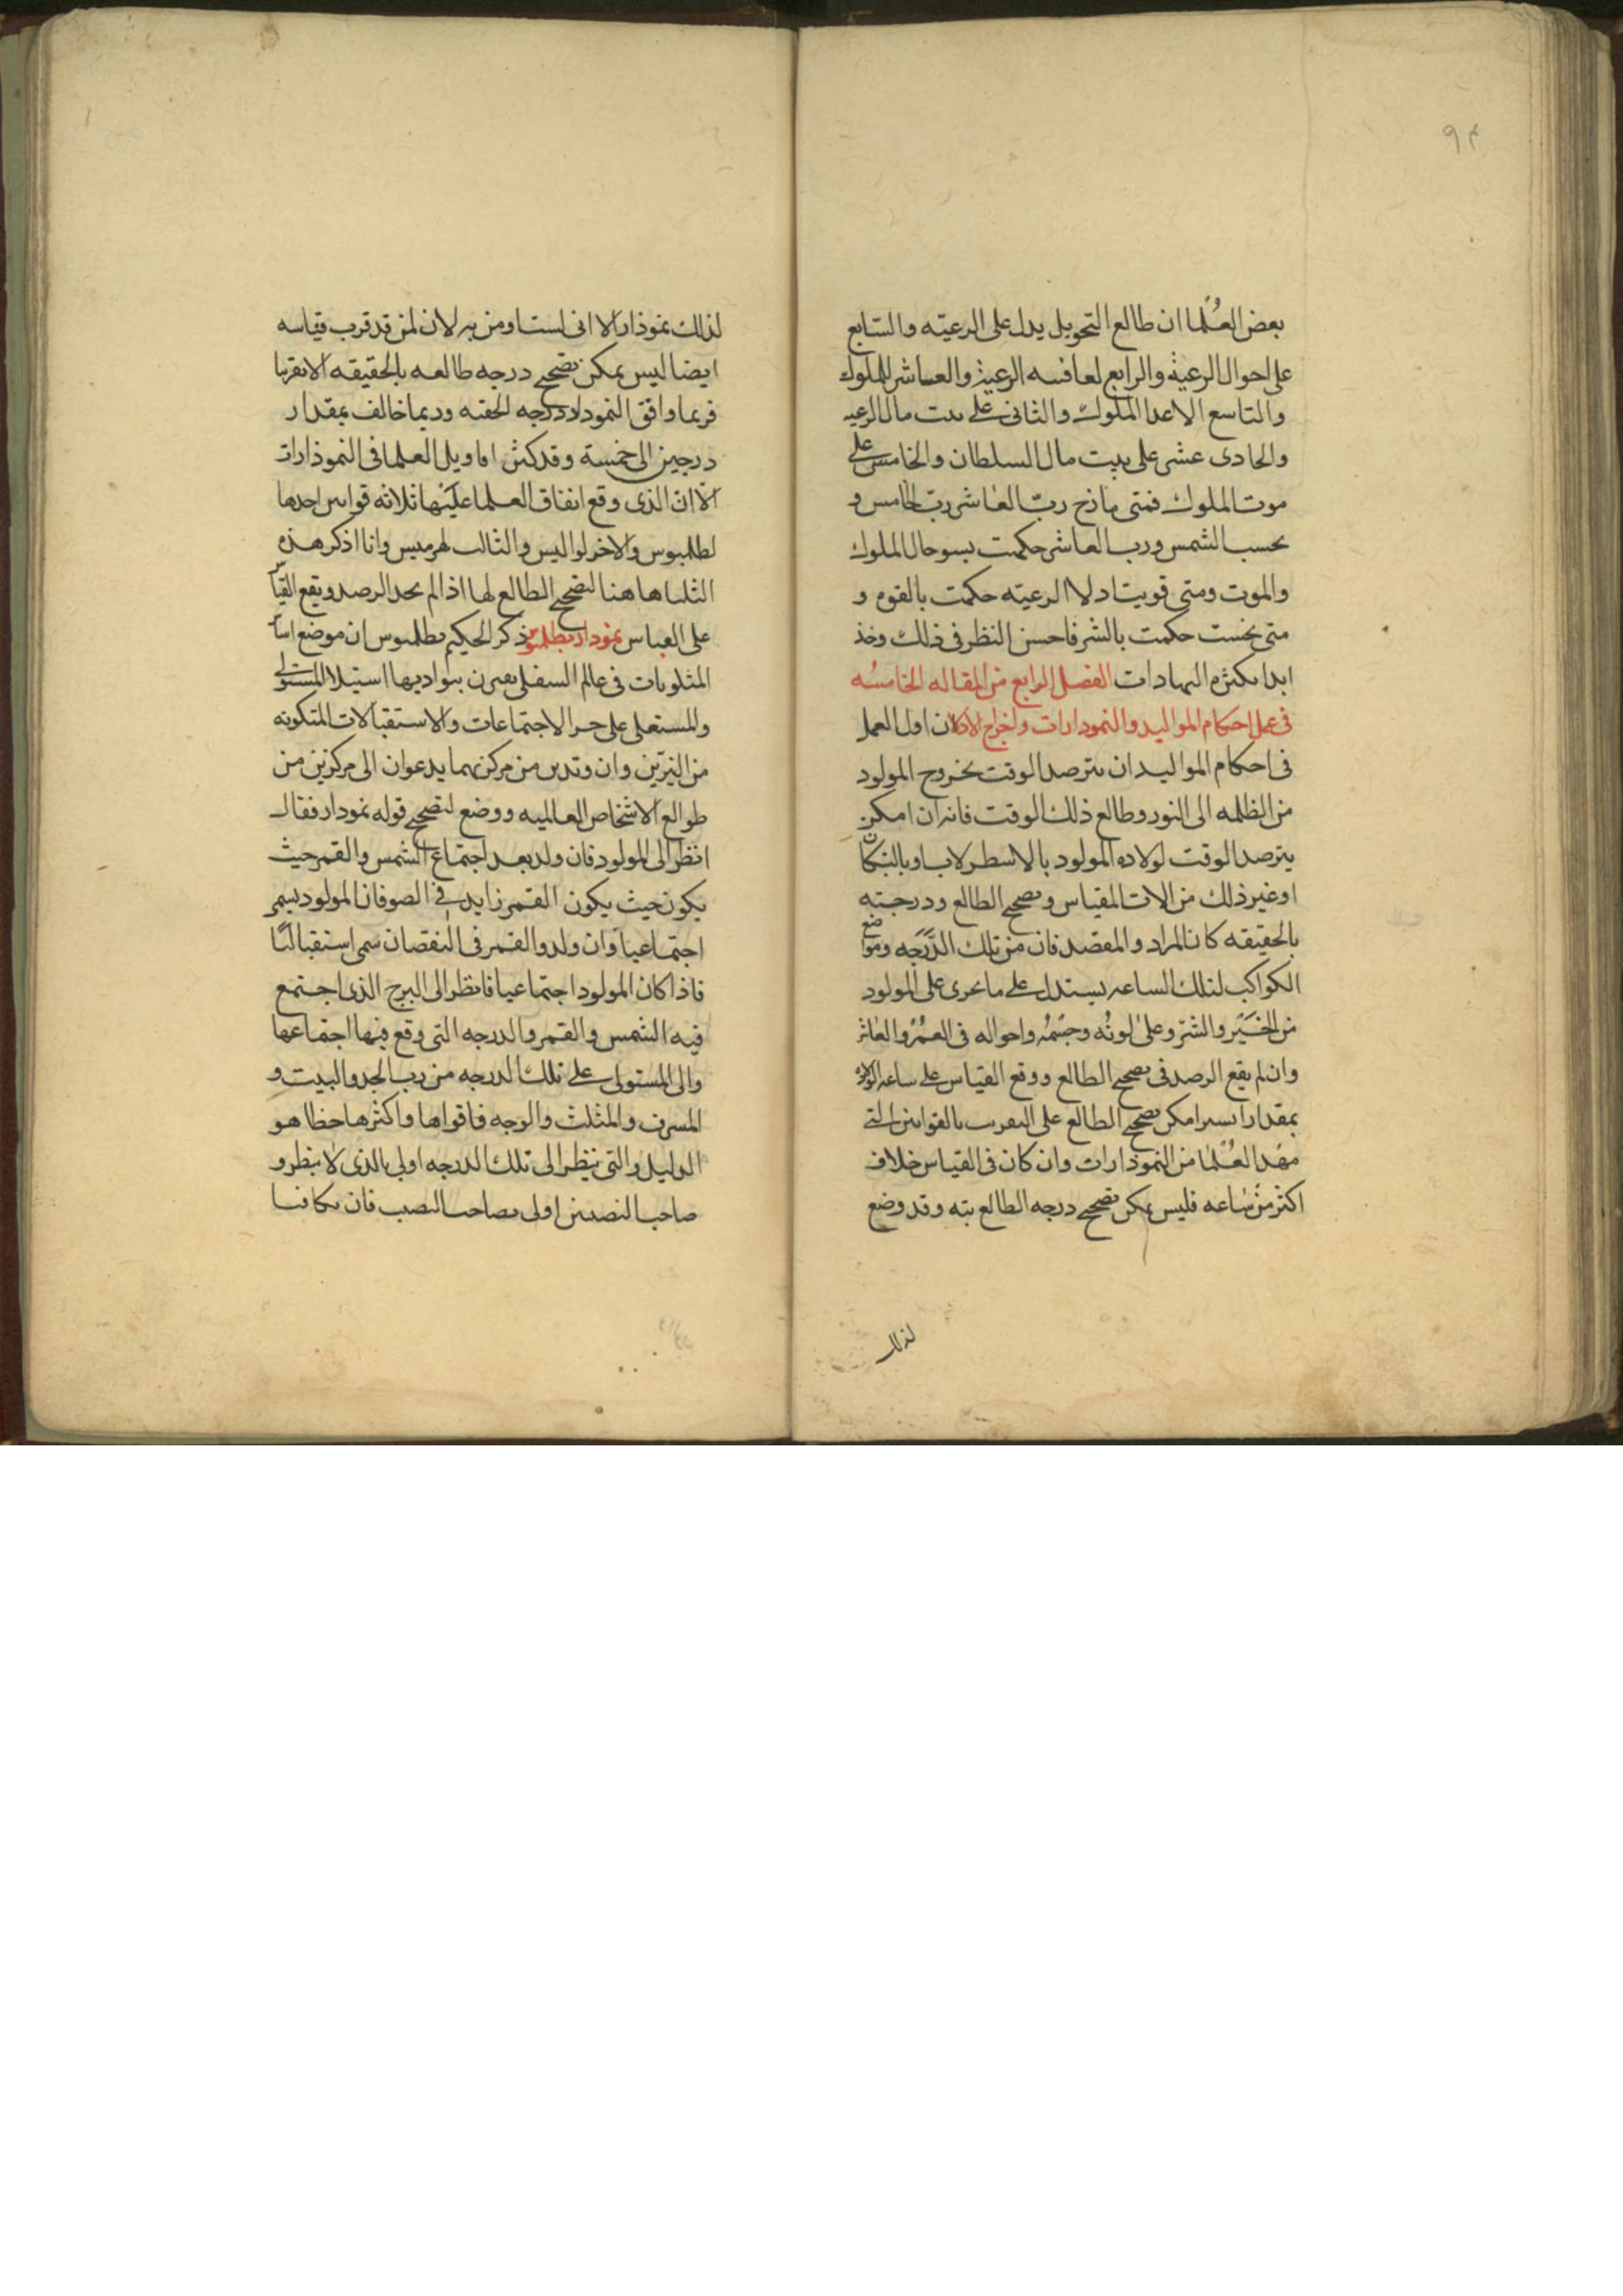 ٩٣
بعض العلما ان طالع التحويل يدل على الرعيته والسابع
على احوال الرعية والرابع لعاقبه الرعية والعاشر للملوك
والتاسع الاعدا الملوك والثانى على بيت مال الرعيه
والحادى عشر على بيت مال السلطان والخامس على
موت الملوك فمتى مازج رب العاشر رب الخامس و
بحسب الشمس ورب العاشر حكمت بسو حال الملوك
والموت ومتى قويتا دلالا الرعيته حكمت بالقوه و
متى نحست حكمت بالشر فاحسن النظر فى ذلك وخذ
ابدا بكثره الشهادات الفصل الرابع من المقاله الخامسه
فى عمل احكام المواليد والنمودارات واخراج الادلا ان اول العمل
فى احكام المواليد ان يترصد الوقت بخروج المولود
من الظلمه الى النور وطالع ذلك الوقت فانه ان امكن
يترصد الوقت لولاده المولود بالاسطرلاب او بالبنكان
او غير ذلك من الات المقياس وتصحيح الطالع ودرجته
بالحقيقه كان المراد والمقصد فان من تلك الدرجه ومواضع
الكواكب لتلك الساعه يستدل على ما يجرى على المولود
من الخير والشر وعلى لونه وجسمه واحواله فى العمر والعاش
وان لم يقع الرصد فى تصحيح الطالع ووقع القياس على ساعه الولاده
بمقدار يسير امكن تصحيح الطالع على التقريب بالقوانين التى
مهد العلما من النموذارات وان كان فى القياس خلاف
اكثر من ساعه فليس يمكن تصحيح درجه الطالع بته وقد وضع
لذلك
لذلك نموذار الا انى لست اومن به لان لمن قد قرب قياسه
ايضا ليس يمكن تصحيح درجه طالعه بالحقيقه الا تقريبا
فربما وافق النمودار درجه الحقه وربما خالف بمقدار
درجين الى خمسة وقد كثر اقاويل العلما فى النموذارات
الا ان الذى وقع اتفاق العلما عليها ثلاثه قوانين احدها
لطلميوس والاخر لواليس والثالث لهرميس وانا اذكر هذه
الثلثا هاهنا لتصحيح الطالع لها اذا لم يجد الرصد ويقع القياس
على القياس نمودار بطلميوس ذكر الحكيم بطلميوس ان موضع اسا
المثلوبات فى عالم السفلى بواديها استيلا المستولى
والمستعلى على جز الاجتماعات والاستقبالات المتكونه
من النيرين وان وتدين من مركزيهما يدعوان الى مركزين من
طوالع الاشخاص العالميه ووضع لتصحيح قوله نمودار فقال
انظر الى المولود فان ولد بعد اجتماع الشمس والقمر حيث
يكون حيث يكون القمر زايد فى الضو فان المولود يسمى
اجتماعيا وان ولد والقمر فى النقصان سمى استقباليا
فاذا كان المولود اجتماعيا فانظر الى البرج الذى اجتمع
فيه الشمس والقمر والدرجه التى وقع فيها اجتماعها
والى المستولى على تلك الدرجه من رب الحد والبيت و
المسرف والمثلث والوجه فاقواها واكثرها حظا هو
الدليل والتى ينظر الى تلك الدرجه اولى بالذى لا ينظر و
صاحب النصيبين اولى بصاحب النصيب فان تكافيا